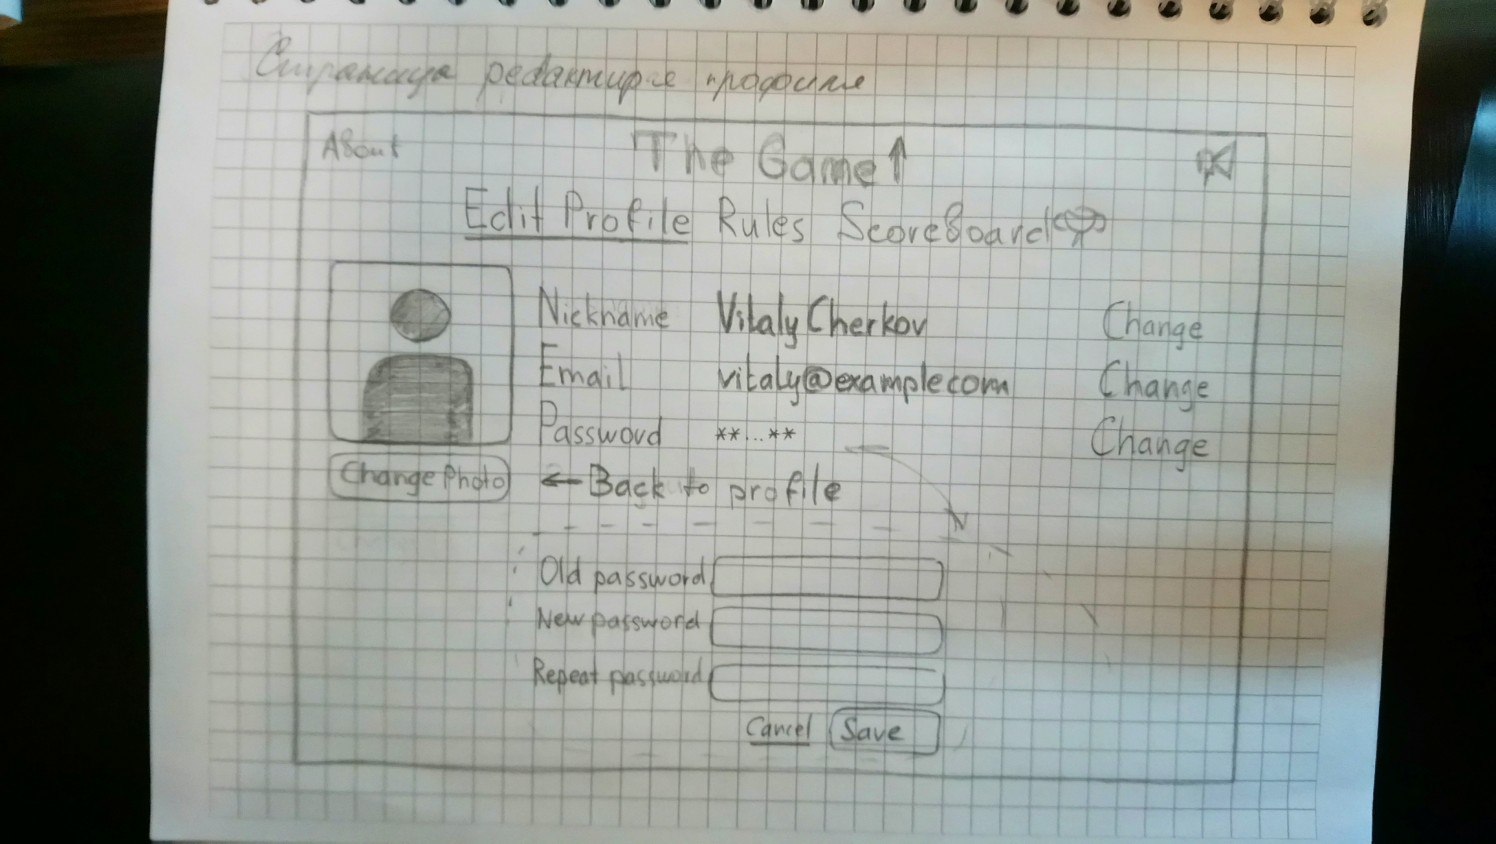 Страница редактир-е профиля
About
The Game↑
Edit Profile Rules ScoreBoard
Nickname VitalyCherkov Change
Email vitaly@example.com Change
Password **...** Change
Change Photo ← Back to profile
Old password
New password
Repeat password
Cancel Save